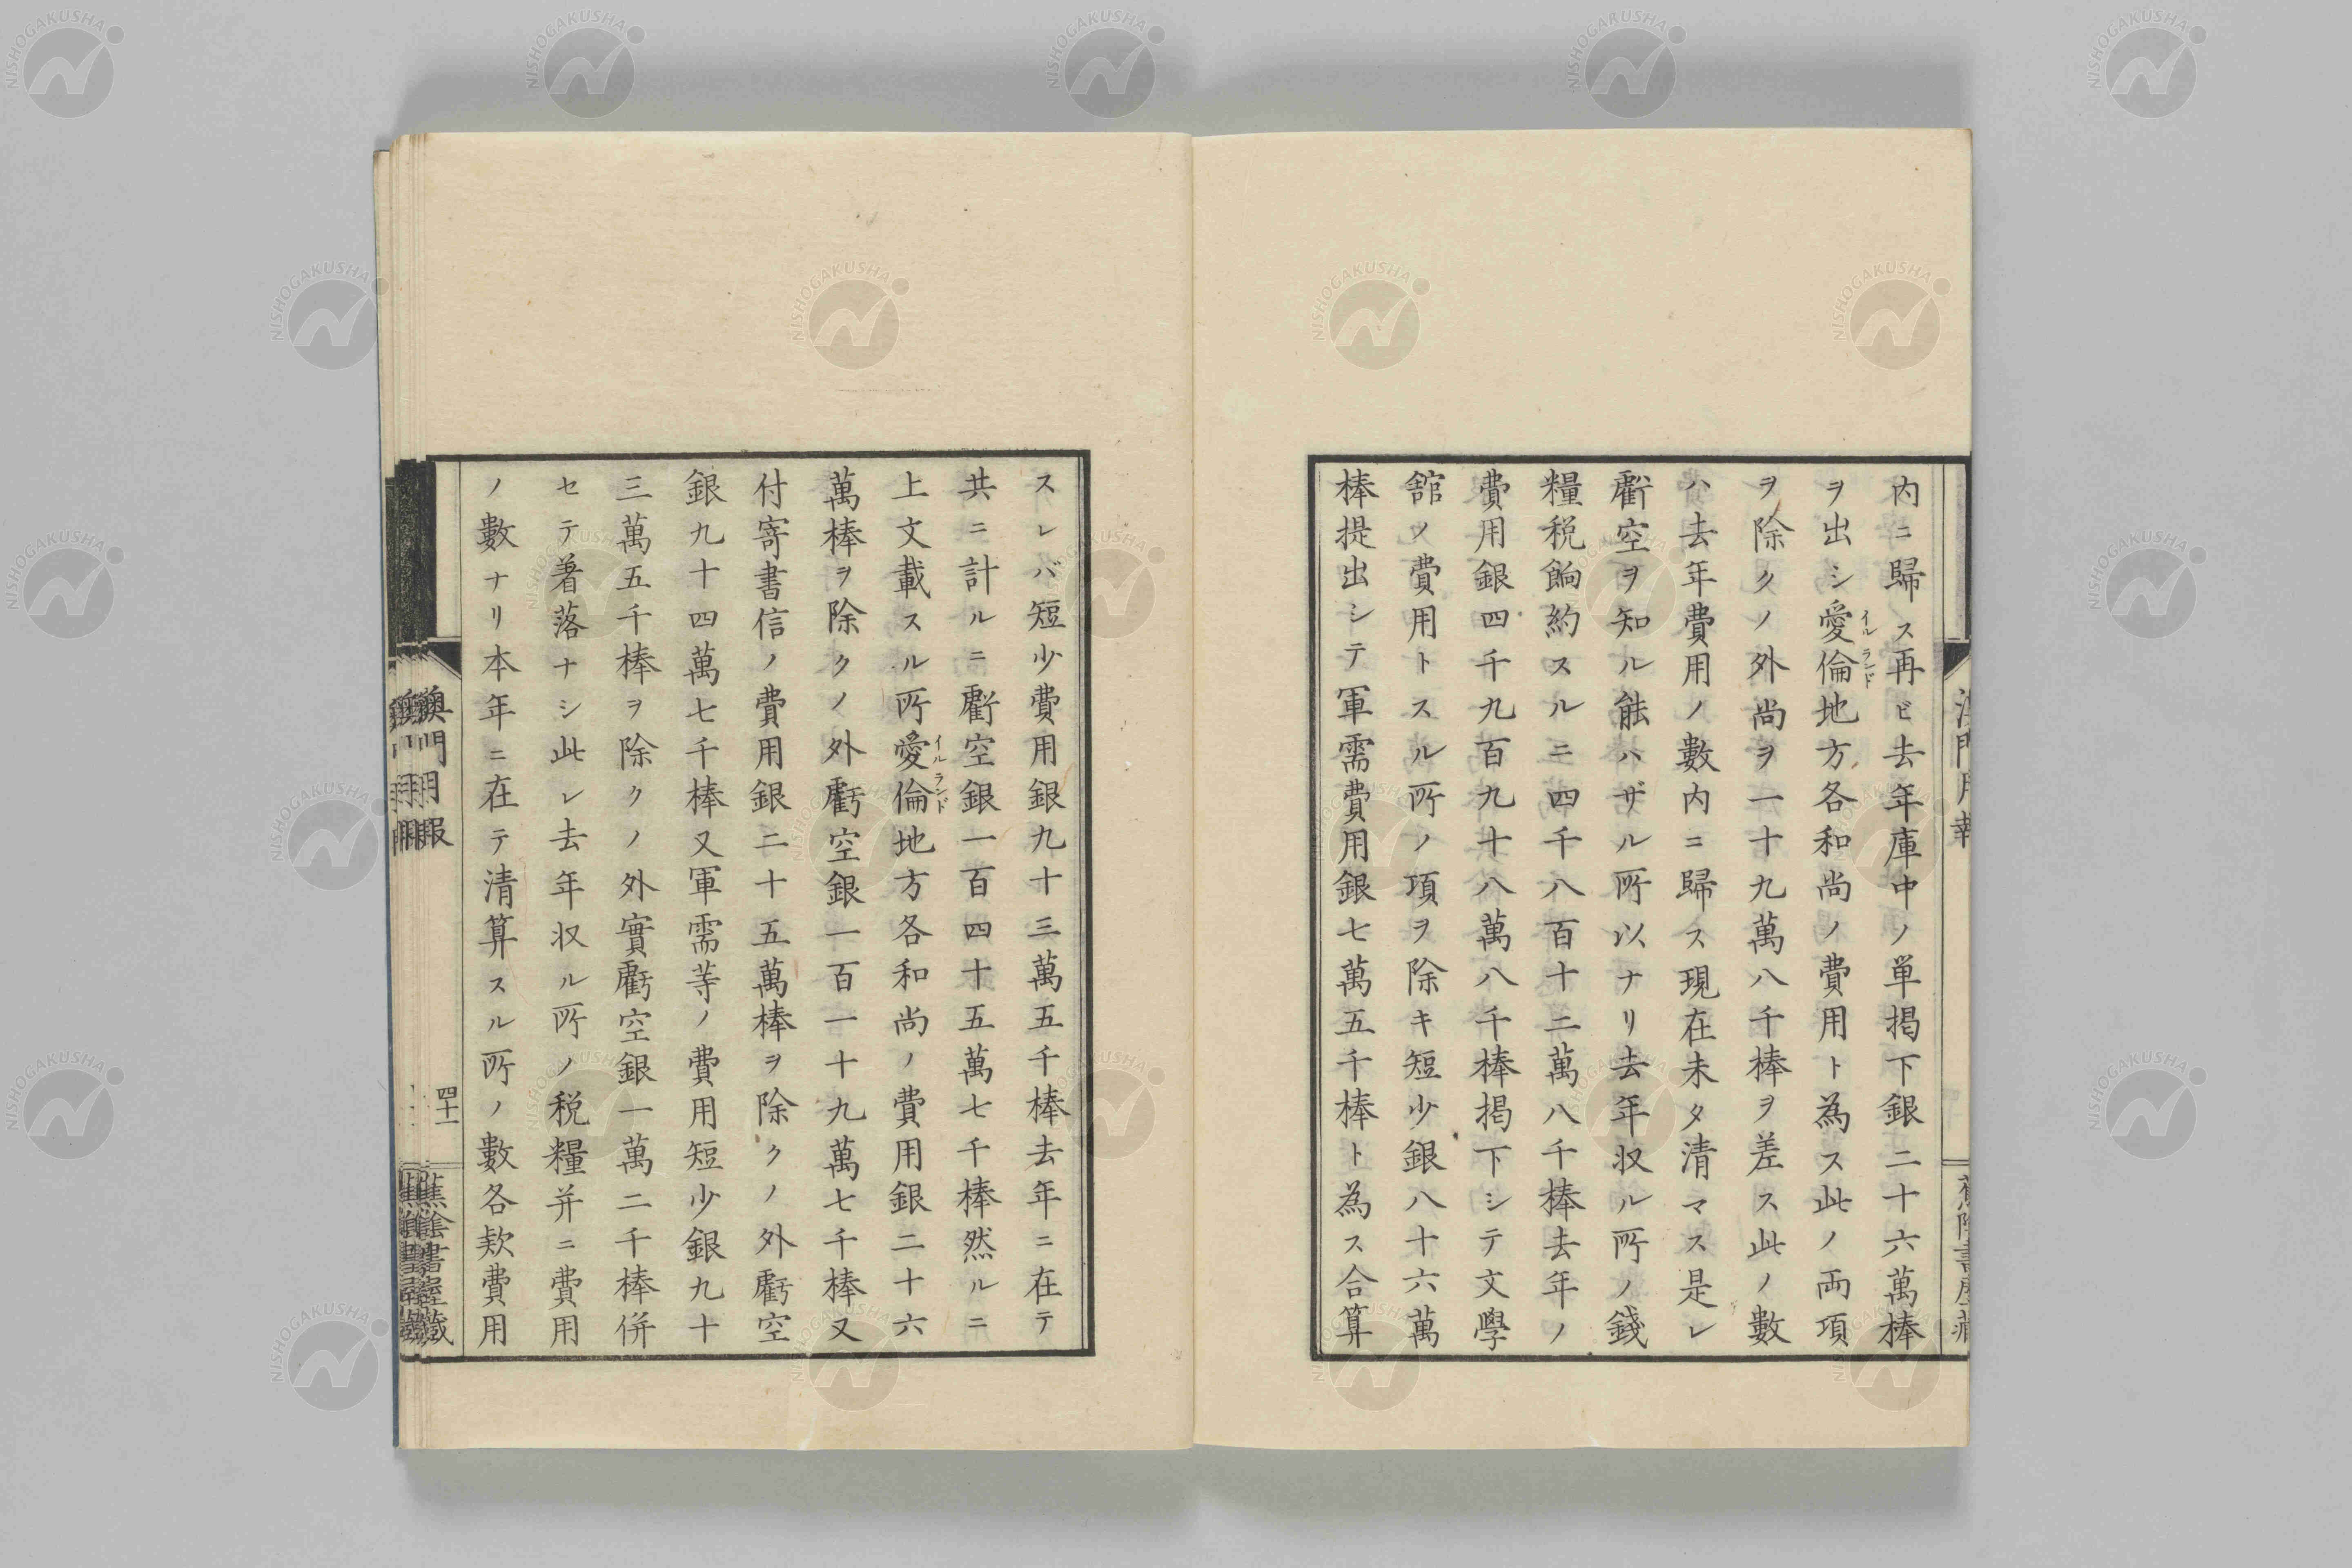 内ニ歸ス再ビ去年庫中ノ単掲下銀二十六萬棒
ヲ出シ愛倫地方各和尚ノ費用ト為ス此ノ両項
イルランド
ヲ除クノ外尚ヲ一十九萬八千棒ヲ差ス此ノ數
ハ去年費用ノ數内ニ歸ス現在未タ清マス是レ
虧空ヲ知ル能ハザル所以ナリ去年収ル所ノ錢
糧税餉約スルニ四千八百十二萬八千棒去年ノ
費用銀四千九百九十八萬八千棒掲下シテ文學
舘ノ費用トスル所ノ項ヲ除キ短少銀八十六萬
棒提出シテ軍需費用銀七萬五千棒ト為ス合算
スレバ短少費用銀九十三萬五千棒去年ニ在テ
共ニ計ルニ虧空銀一百四十五萬七千棒然ルニ
上文載スル所愛倫地方各和尚ノ費用銀二十六
イルランド
萬棒ヲ除クノ外虧空銀一百一十九萬七千棒又
付寄書信ノ費用銀二十五萬棒ヲ除クノ外虧空
銀九十四萬七千棒又軍需等ノ費用短少銀九十
三萬五千棒ヲ除クノ外實虧空銀一萬二千棒併
セテ著落ナシ此レ去年収ル所ノ税糧并ニ費用
ノ數ナリ本年ニ在テ清算スル所ノ數各欵費用
澳門月報
四十一
蕉陰書屋藏